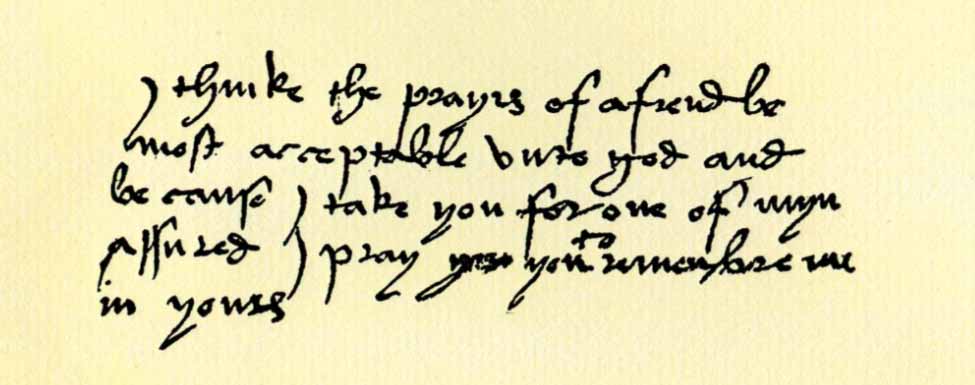 I thinke the prayrs of a frend be
most acceptable vnto god and
be cause I take you for one of myn
assured I pray you to remembre me
in yours